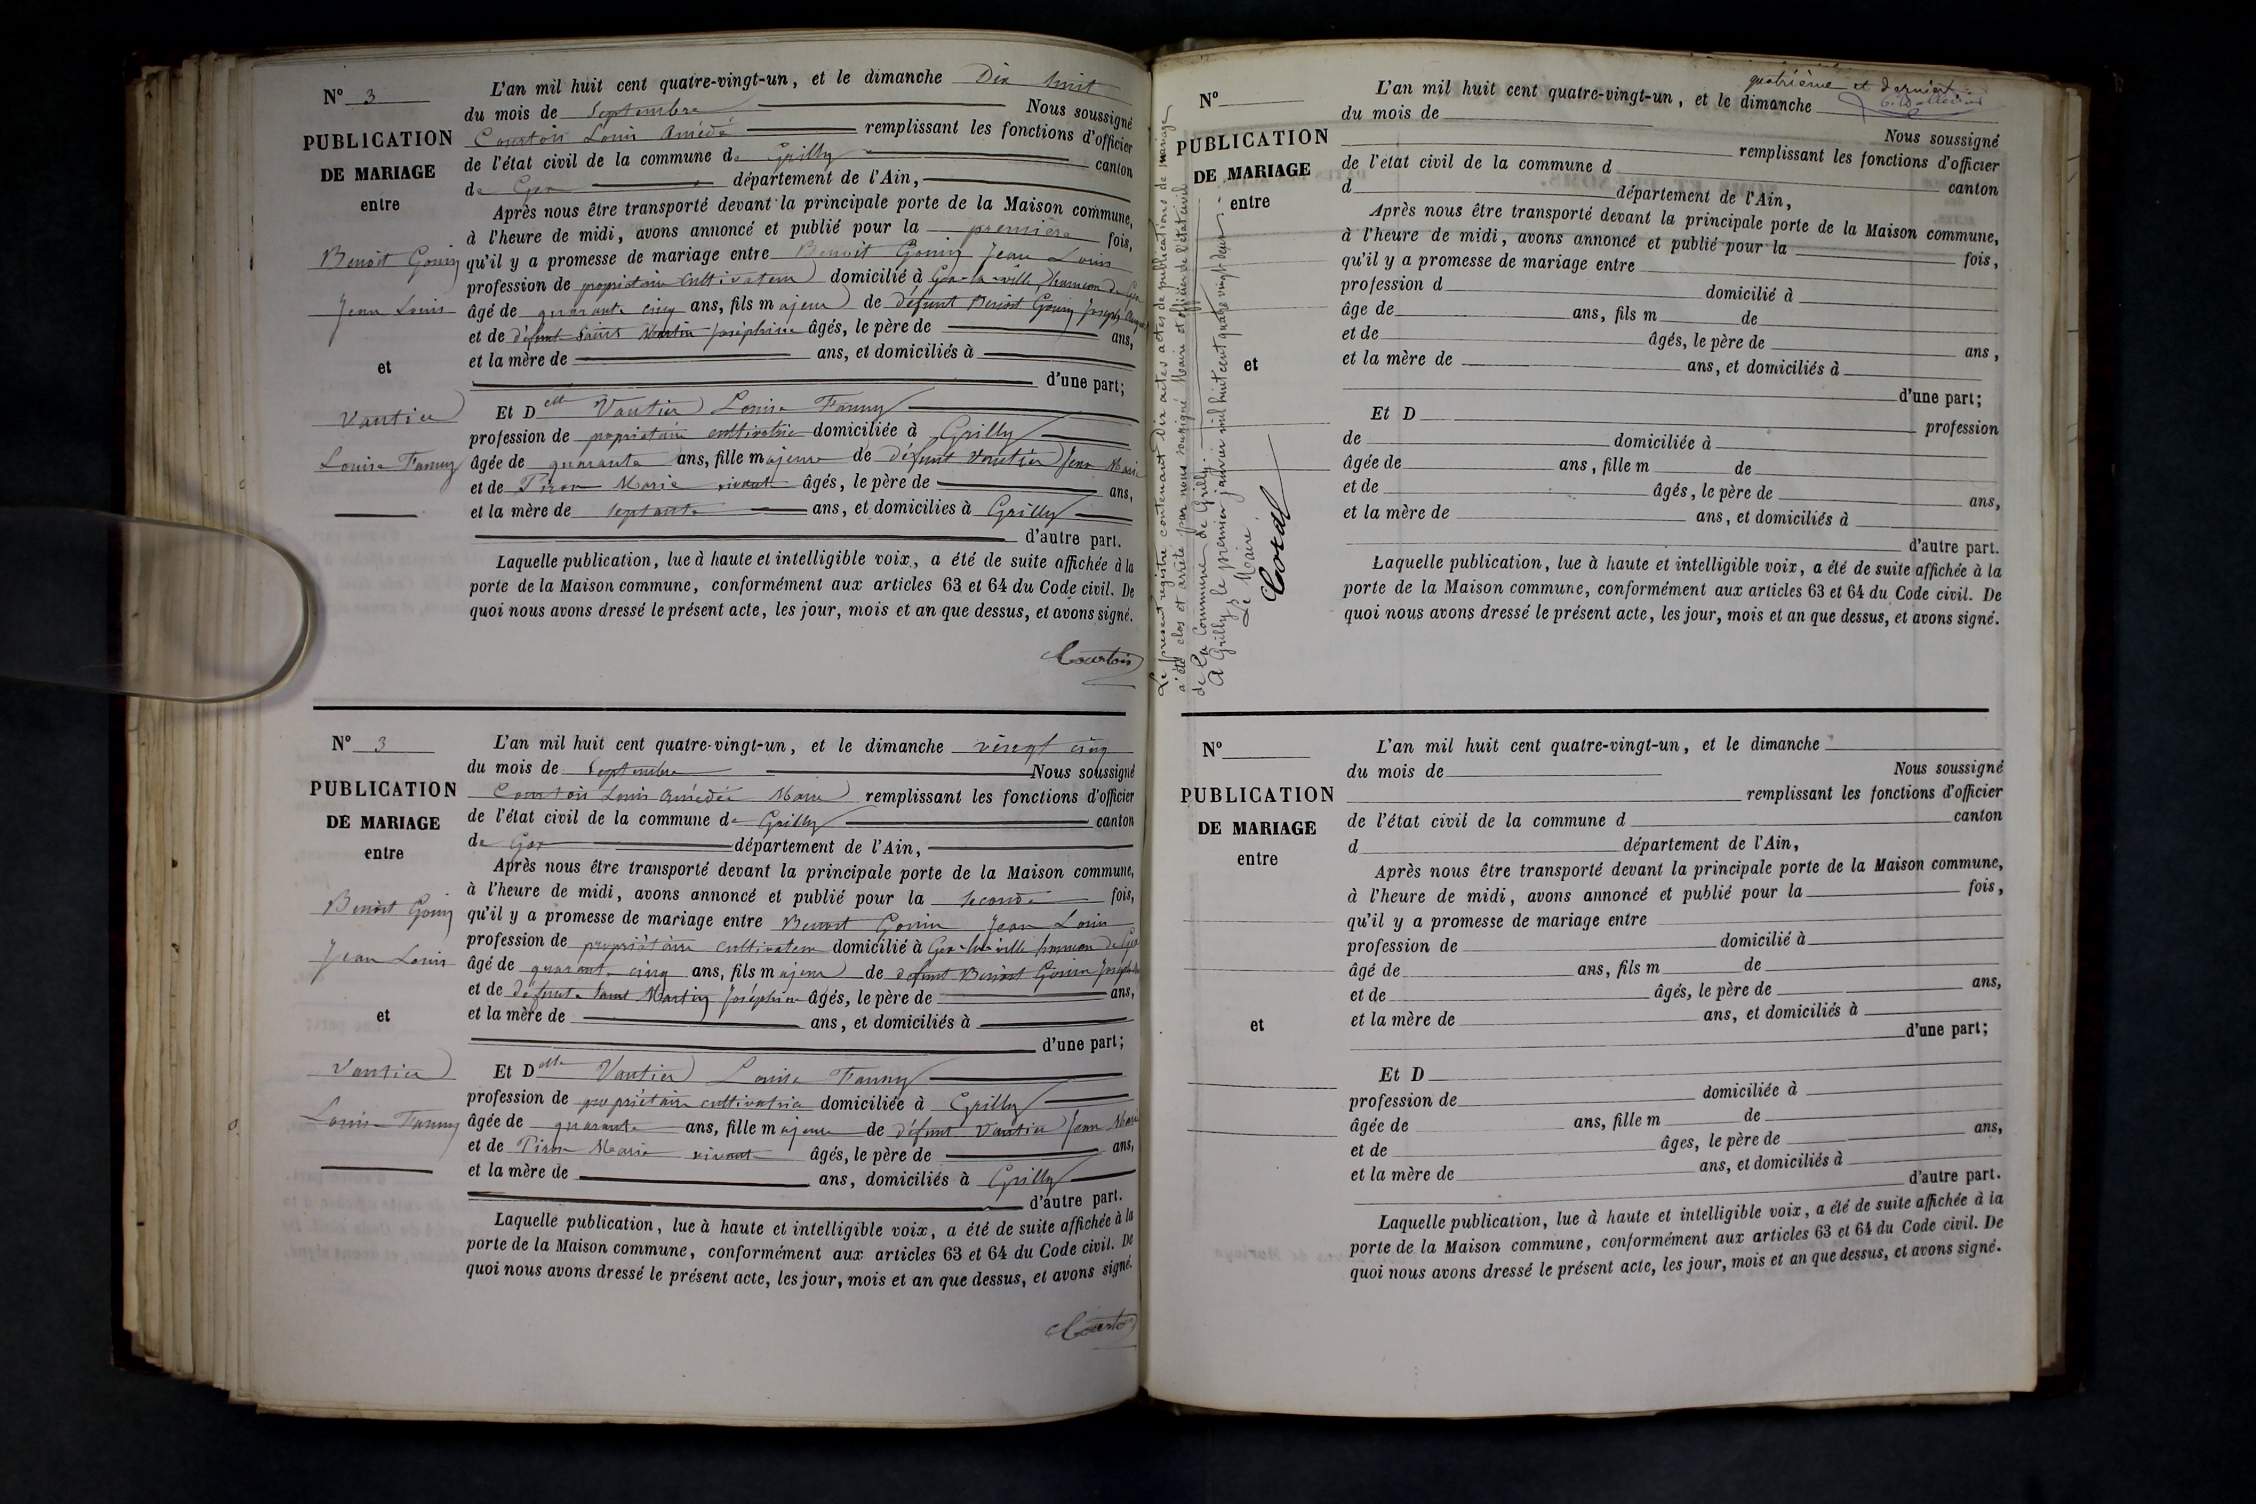 N° 3
PUBLICATION
DE MARIAGE
entre
Benoit Gonin
Jean Louis
et
Vautier
Louise Fanny
L'an mil huit cent quatre-vingt-un, et le dimanche Dix huit
du mois de Septembre Nous soussigné
Courtois Louis Amédé remplissant les fonctions d'officier
de l'état civil de la commune de Grilly canton
de Gex département de l'Ain,
Après nous être transporté devant la principale porte de la Maison commune,
à l'heure de midi, avons annoncé et publié pour la première fois,
qu'il y a promesse de mariage entre Benoit Gonin Jean Louis
profession de propriétaire cultivateur domicilié à Gex-la-ville
âgé de quarante cinq ans, fils majeur de défunt Benoit Gonin Joseph
et de défunte Saint Martin Joséphine âgés, le père de ans,
et la mère de ans, et domiciliés à
d'une part;
Et Delle Vautier Louise Fanny
profession de propriétaire cultivatrice domiciliée à Grilly
âgée de quarante ans, fille majeure de défunt Vautier Jean Marie
et de Piron Marie vivante âgés, le père de ans,
et la mère de septante ans, et domicilies à Grilly
d'autre part.
Laquelle publication, lue à haute et intelligible voix, a été de suite affichée à la
porte de la Maison commune, conformément aux articles 63 et 64 du Code civil. De
quoi nous avons dressé le présent acte, les jour, mois et an que dessus, et avons signé.
Courtois
N° 3
PUBLICATION
DE MARIAGE
entre
Benoit Gonin
Jean Louis
et
Vautier
Louise Fanny
L'an mil huit cent quatre-vingt-un, et le dimanche vingt cinq
du mois de Septembre Nous soussigné
Courtois Louis Amédée Maire remplissant les fonctions d'officier
de l'état civil de la commune de Grilly canton
de Gex département de l'Ain,
Après nous être transporté devant la principale porte de la Maison commune,
à l'heure de midi, avons annoncé et publié pour la seconde fois,
qu'il y a promesse de mariage entre Benoit Gonin Jean Louis
profession de propriétaire cultivateur domicilié à Gex-la-ville
âgé de quarante cinq ans, fils majeur de défunt Benoit Gonin Joseph
et de défunte Saint Martin Joséphine âgés, le père de ans,
et la mère de ans, et domiciliés à
d'une part;
Et Delle Vautier Louise Fanny
profession de propriétaire cultivatrice domiciliée à Grilly
âgée de quarante ans, fille majeure de défunt Vautier Jean Marie
et de Piron Marie vivante âgés, le père de ans,
et la mère de ans, domiciliés à Grilly
d'autre part.
Laquelle publication, lue à haute et intelligible voix, a été de suite affichée à la
porte de la Maison commune, conformément aux articles 63 et 64 du Code civil. De
quoi nous avons dressé le présent acte, les jour, mois et an que dessus, et avons signé.
Courtois
Le présent registre contenant dix actes actes de publications de mariage
a été clos et arrêté par nous soussigné Maire et officier de l'état civil
de la Commune de Grilly.
A Grilly le premier janvier mil huit cent quatre vingt deux
Le Maire
quatrième et dernier
N°
PUBLICATION
DE MARIAGE
entre
et
L'an mil huit cent quatre-vingt-un, et le dimanche
du mois de
Nous soussigné
remplissant les fonctions d'officier
de l'état civil de la commune d canton
d département de l'Ain,
Après nous être transporté devant la principale porte de la Maison commune,
à l'heure de midi, avons annoncé et publié pour la fois,
qu'il y a promesse de mariage entre
profession d domicilié à
âge de ans, fils m de
et de âgés, le père de ans,
et la mère de ans, et domiciliés à
d'une part;
Et D profession
de domiciliée à
âgée de ans, fille m de
et de âgés, le père de ans,
et la mère de ans, et domiciliés à
d'autre part.
Laquelle publication, lue à haute et intelligible voix, a été de suite affichée à la
porte de la Maison commune, conformément aux articles 63 et 64 du Code civil. De
quoi nous avons dressé le présent acte, les jour, mois et an que dessus, et avons signé.
N°
PUBLICATION
DE MARIAGE
entre
et
L'an mil huit cent quatre-vingt-un, et le dimanche
du mois de Nous soussigné
remplissant les fonctions d'officier
de l'état civil de la commune d canton
d département de l'Ain,
Après nous être transporté devant la principale porte de la Maison commune,
à l'heure de midi, avons annoncé et publié pour la fois,
qu'il y a promesse de mariage entre
profession de domicilié à
âgé de ans, fils m de
et de âgés, le père de ans,
et la mère de ans, et domiciliés à
d'une part;
Et D
profession de domiciliée à
âgée de ans, fille m de
et de âges, le père de ans,
et la mère de ans, et domiciliés à
d'autre part.
Laquelle publication, lue à haute et intelligible voix, a été de suite affichée à la
porte de la Maison commune, conformément aux articles 63 et 64 du Code civil. De
quoi nous avons dressé le présent acte, les jour, mois et an que dessus, et avons signé.